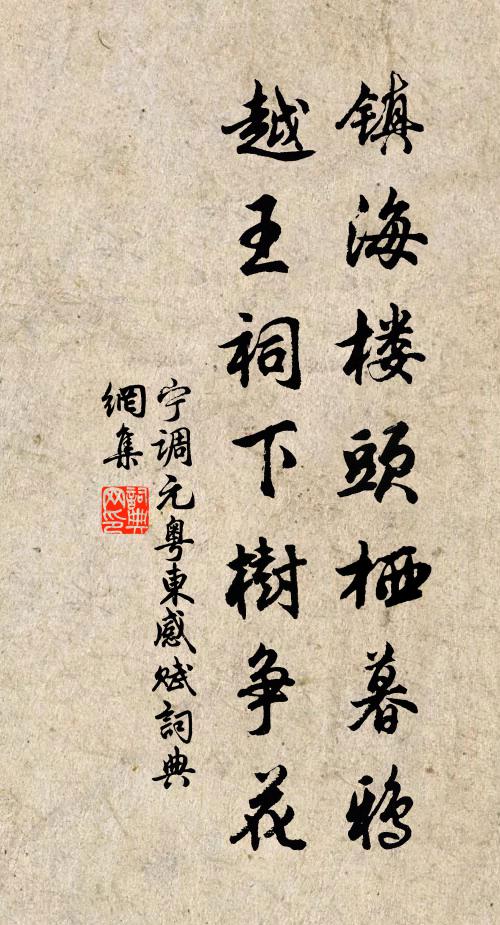 镇海楼頭栖暮鸦
越王祠下樹争花
宁调元粤東感赋詞典
網集
詞典
网印